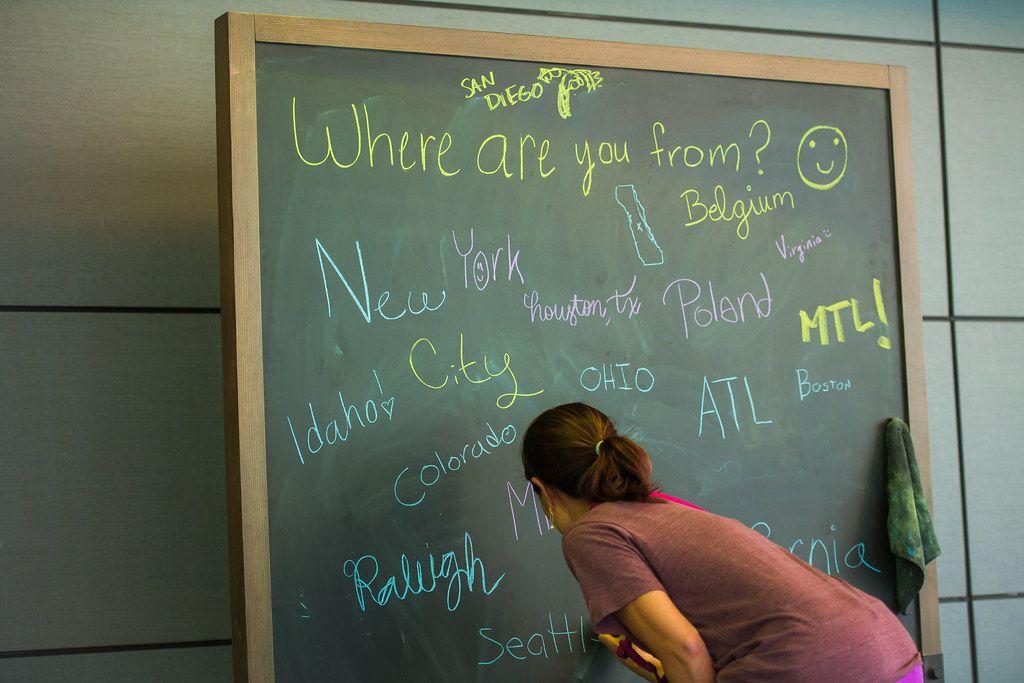 SAN
DIEGO
Where are you from?
Belgium
Virginia
New York
City
houston, tx
Poland
MTL!
Idaho!
OHIO
ATL
Boston
Colorado
Raleigh